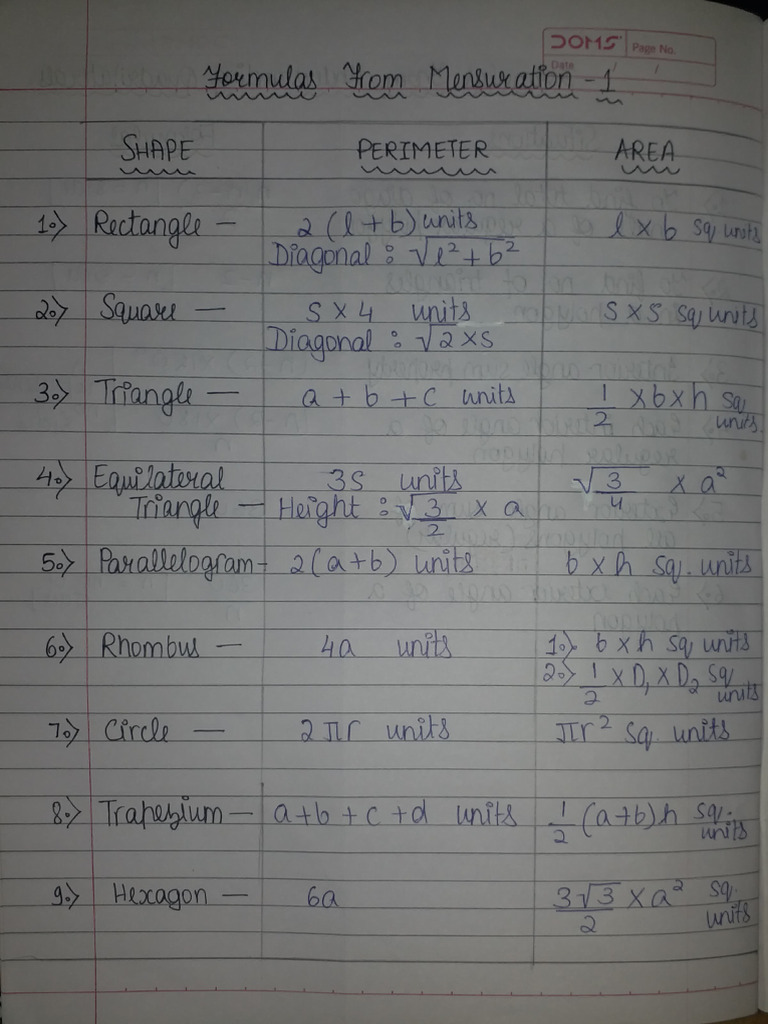 DOMS Page No.
Date / /
Formulas From Mensuration - 1
SHAPE PERIMETER AREA
1.> Rectangle — 2 (l + b) units l × b sq units
Diagonal : √l² + b²
2.> Square — S × 4 units S × S sq units
Diagonal : √2 × S
3.> Triangle — a + b + c units 1/2 × b × h sq units.
4.> Equilateral 3S units √3/4 × a²
Triangle — Height : √3/2 × a
5.> Parallelogram - 2(a+b) units b × h sq. units
6.> Rhombus — 4a units 1.> b × h sq units
2.> 1/2 × D₁ × D₂ sq units
7.> Circle — 2πr units πr² sq. units
8.> Trapezium — a + b + c + d units 1/2 (a+b)h sq. units
9.> Hexagon — 6a 3√3/2 × a² sq. units